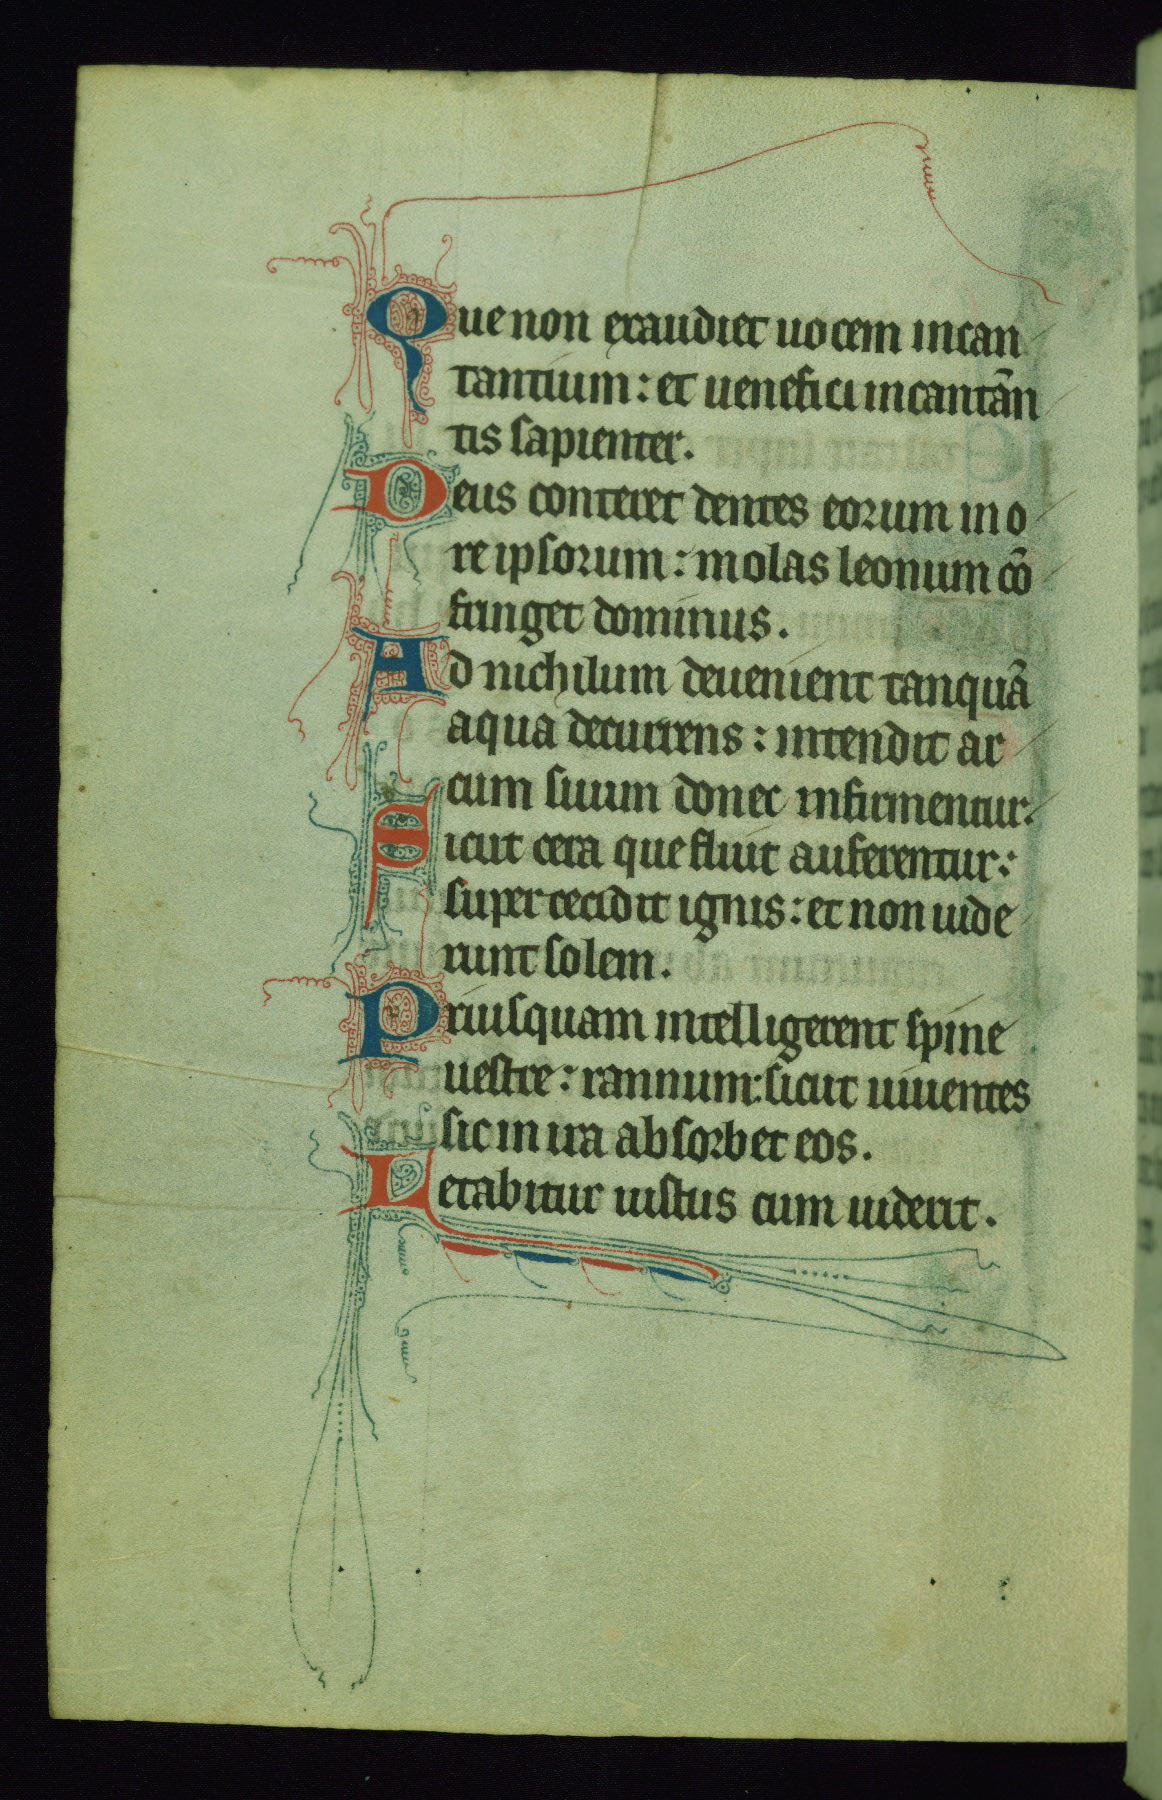 Que non exaudiet uocem incan
tantium: et uenefici incantān
tis sapienter.
Deus conteret dentes eorum in o
re ipsorum: molas leonum cō
fringet dominus.
Ad nichilum deuenient tanquā
aqua decurrens: intendit ar
cum suum donec infirmentur.
Sicut cera que fluit auferentur:
super cecidit ignis: et non uide
runt solem.
Priusquam intelligerent spine
uestre: rannum: sicut uiuentes
sic in ira absorbet eos.
Letabitur iustus cum uiderit.